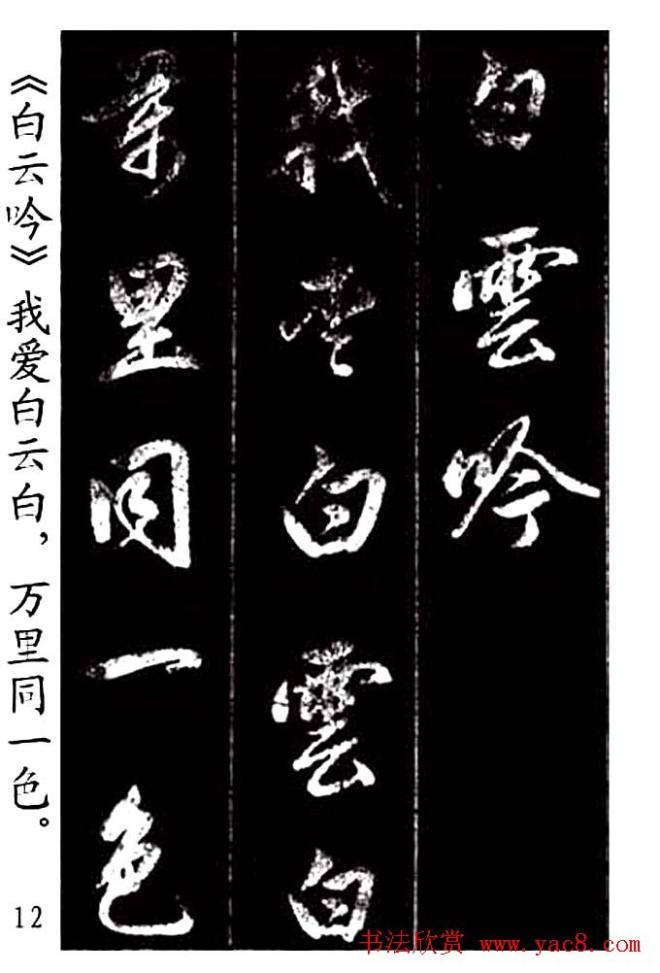 白雲吟
我爱白雲白
万里同一色
《白云吟》我爱白云白，万里同一色。
12
书法欣赏 www.yac8.com